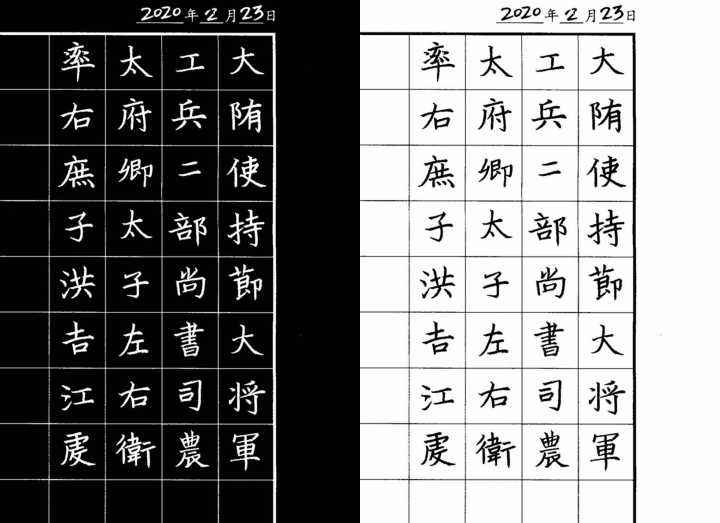 2020年2月23日
大陏使持節大将軍
工兵二部尚書司農
太府卿太子左右衛
率右庶子洪吉江虔
2020年2月23日
大陏使持節大将軍
工兵二部尚書司農
太府卿太子左右衛
率右庶子洪吉江虔